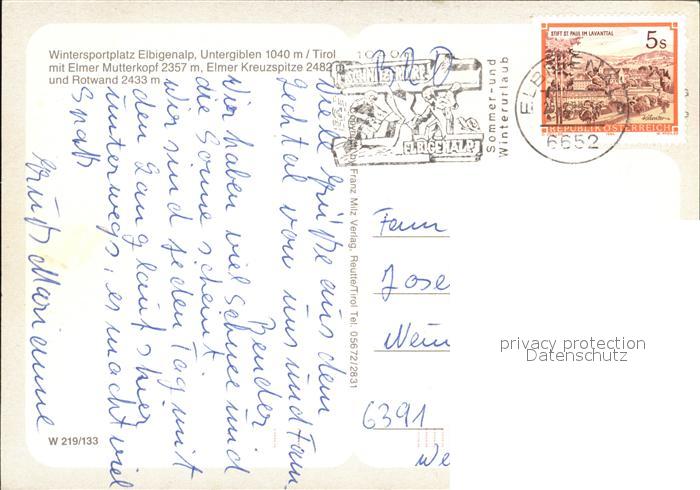 Wintersportplatz Elbigenalp, Untergiblen 1040 m / Tirol
mit Elmer Mutterkopf 2357 m, Elmer Kreuzspitze 2482 m
und Rotwand 2433 m
Viele Grüße aus dem
Lechtal von uns und Fam.
Bender
Wir haben viel Schnee und
die Sonne scheint
wir sind jeden Tag mit
den Langlauf skier
unterwegs, es macht viel
Spaß
Gruß Marianne
W 219/133
Franz Milz Verlag, Reutte/Tirol Tel. 05672/2831
BRD
ELBIGENALP
Sommer-und
Winterurlaub
6652
STIFT ST. PAUL IM LAVANTTAL
5s
REPUBLIK ÖSTERREICH
Fam
Jose
Wein
6391
We
privacy protection
Datenschutz